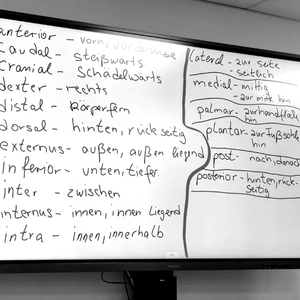 anterior - vorn, vordseitig
caudal - steißwärts
cranial - Schädelwärts
dexter - rechts
distal - körperfern
dorsal - hinten, rückseitig
externus - außen, außen liegend
inferior - unten, tiefer
inter - zwischen
internus - innen, innen liegend
intra - innen, innerhalb
lateral - zur seite
- seitlich
medial - mittig
- zur mitte hin
palmar - zur handfläche
hin
plantar - zur Fußsohle
hin
post - nach, danach
posterior - hinten, rück-
seitig